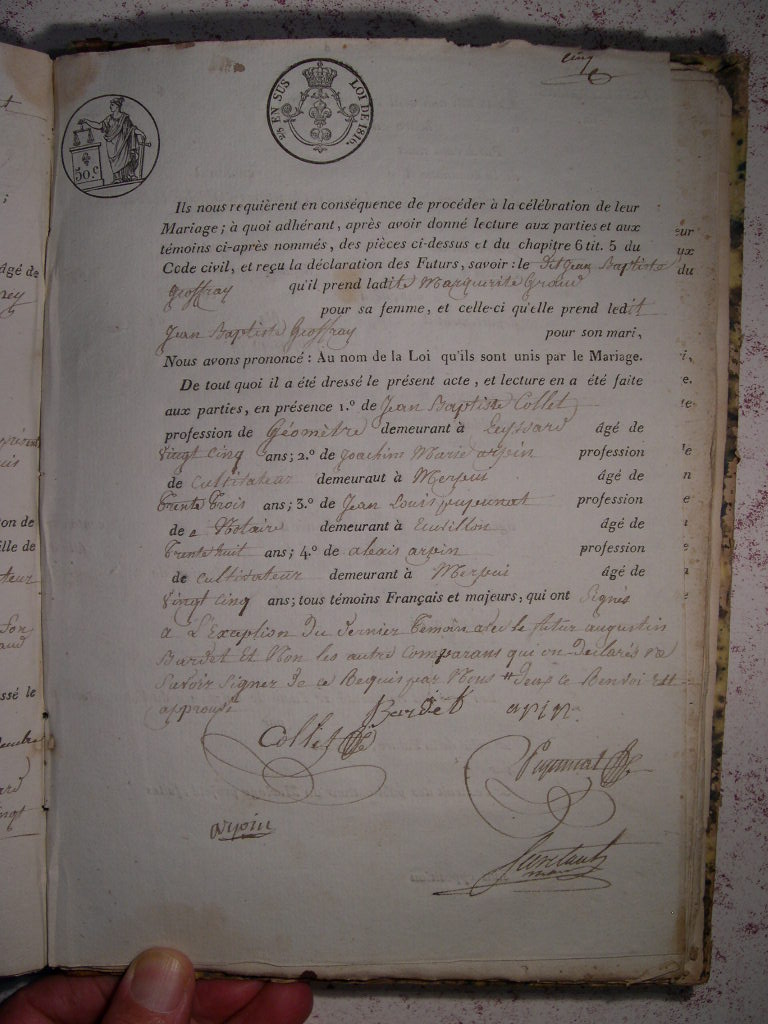 cinq
50.c
25 EN SUS LOI DE 1816.
Ils nous requièrent en conséquence de procéder à la célébration de leur
Mariage; à quoi adhérant, après avoir donné lecture aux parties et aux
témoins ci-après nommés, des pièces ci-dessus et du chapitre 6 tit. 5 du
Code civil, et reçu la déclaration des Futurs, savoir: le dit Jean Baptiste
Geoffray qu'il prend ladite Marguerite
pour sa femme, et celle-ci qu'elle prend ledit
Jean Baptiste Geoffray pour son mari,
Nous avons prononcé: Au nom de la Loi qu'ils sont unis par le Mariage.
De tout quoi il a été dressé le présent acte, et lecture en a été faite
aux parties, en présence 1.º de Jean Baptiste Collet
profession de Géomètre demeurant à Leyssard âgé de
vingt cinq ans; 2.º de Joachim Marie arpin profession
de cultivateur demeurant à Merpuis âgé de
trente trois ans; 3.º de Jean Louis pupunat profession
de Notaire demeurant à âgé de
trente huit ans; 4.º de alexis arpin profession
de cultivateur demeurant à Merpuis âgé de
vingt cinq ans; tous témoins Français et majeurs, qui ont signés
a L'Exception du dernier temoin avec le futur augustin
Bardet Et Non les autre Comparans qui on Declarés ne
Savoir Signer de ce Requis par Nous # Deux ce Renvoi Est
approuvé
Bardet arpin
Collet
Pupunat
arpin
maire
âgé de
ton de
lle de
ssé le
eur
ux
du
i,
e.